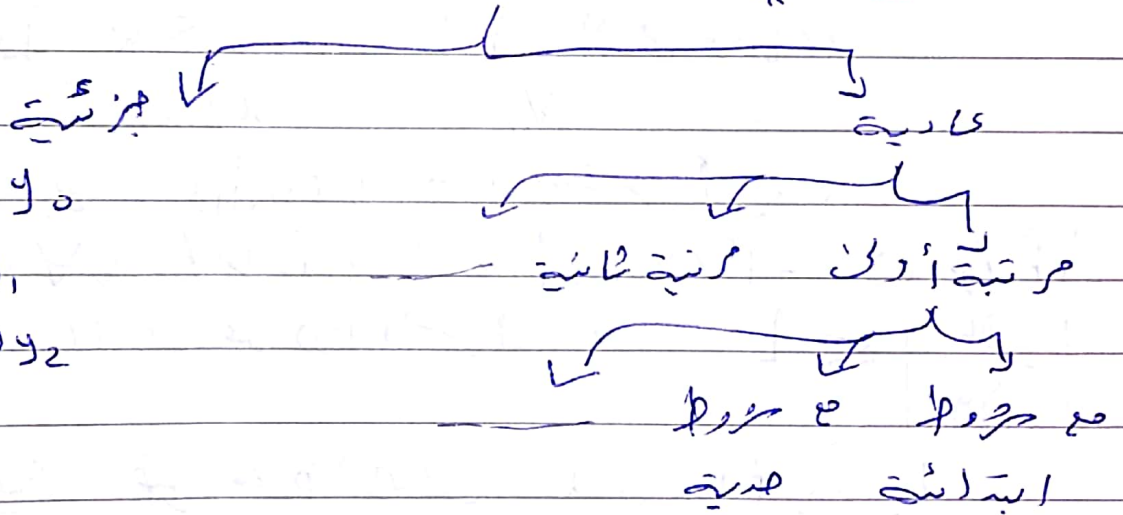 عادية جزئية
y0
مرتبة أولى مرتبة ثانية
y2
مع شروط مع شروط
ابتدائية حدية